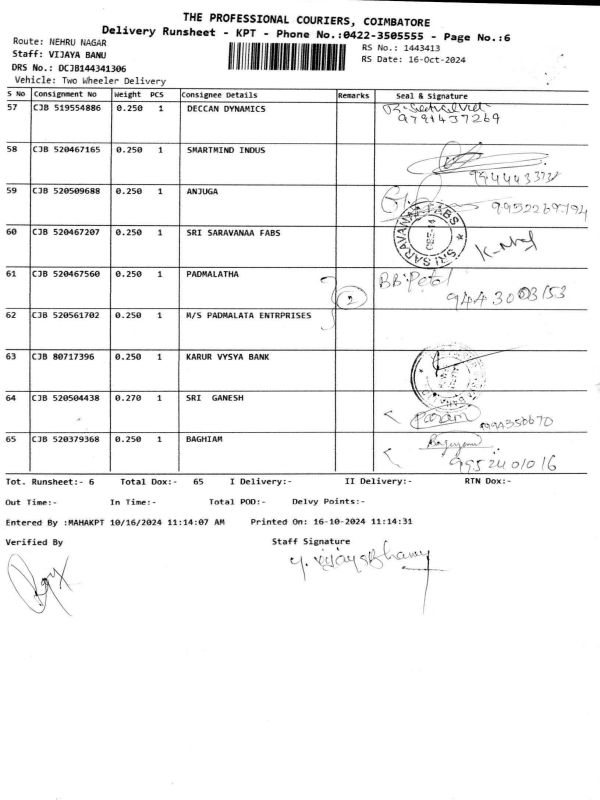 THE PROFESSIONAL COURIERS, COIMBATORE
Delivery Runsheet - KPT - Phone No.:0422-3505555 - Page No.:6
Route: NEHRU NAGAR RS No.: 1443413
Staff: VIJAYA BANU RS Date: 16-Oct-2024
DRS No.: DCJB144341306
Vehicle: Two Wheeler Delivery
S No Consignment No Weight PCS Consignee Details Remarks Seal & Signature
57 CJB 519554886 0.250 1 DECCAN DYNAMICS
9791437269
58 CJB 520467165 0.250 1 SMARTMIND INDUS
59 CJB 520509688 0.250 1 ANJUGA
9952269794
60 CJB 520467207 0.250 1 SRI SARAVANAA FABS
SRI SARAVANAA FABS
61 CJB 520467560 0.250 1 PADMALATHA
2
62 CJB 520561702 0.250 1 M/S PADMALATA ENTRPRISES
63 CJB 80717396 0.250 1 KARUR VYSYA BANK
64 CJB 520504438 0.270 1 SRI GANESH
65 CJB 520379368 0.250 1 BAGHIAM
9952401016
Tot. Runsheet:- 6 Total Dox:- 65 I Delivery:- II Delivery:- RTN Dox:-
Out Time:- In Time:- Total POD:- Delvy Points:-
Entered By :MAHAKPT 10/16/2024 11:14:07 AM Printed On: 16-10-2024 11:14:31
Verified By Staff Signature